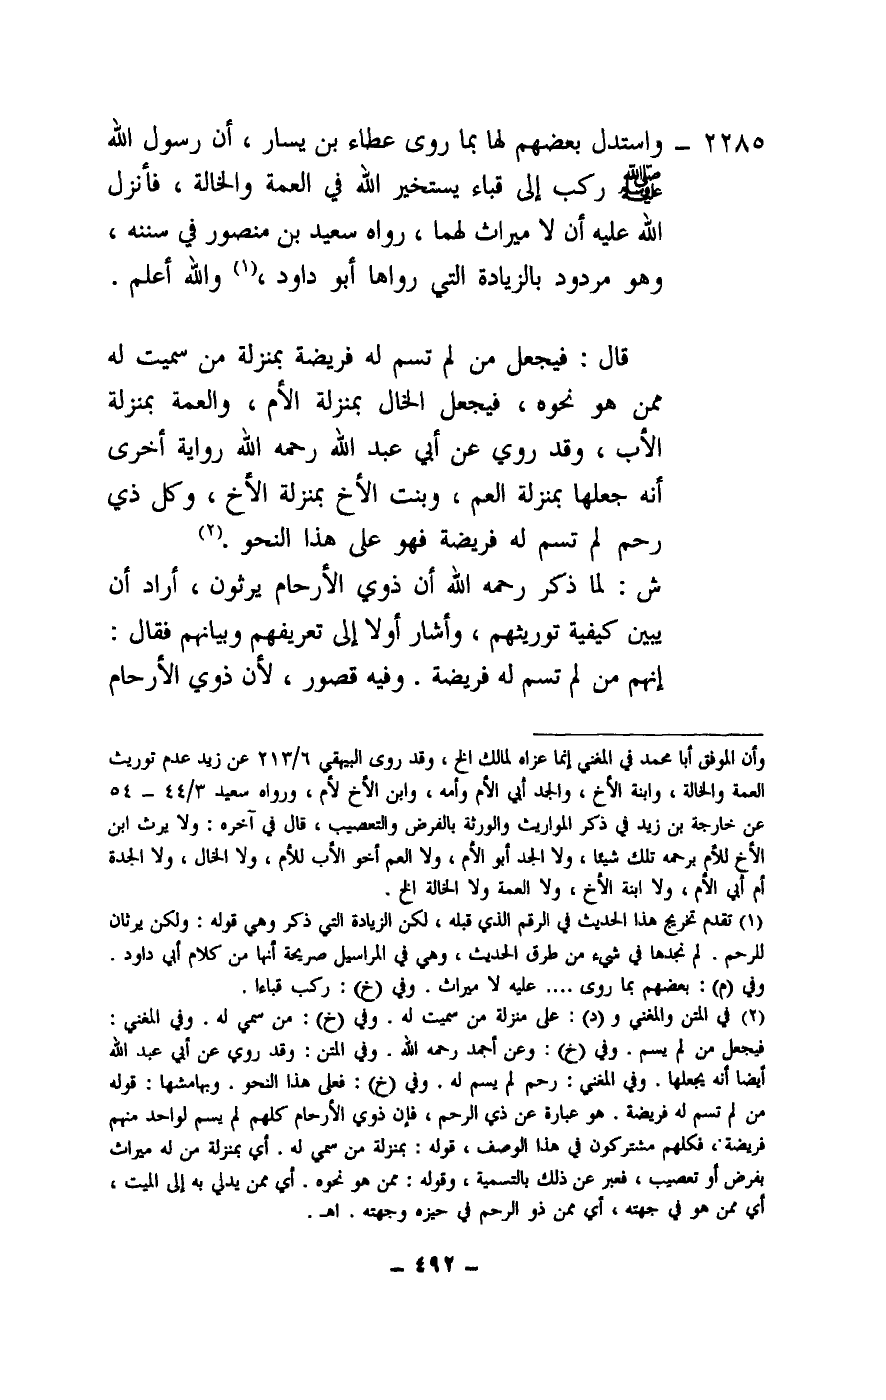 ٢٢٨٥ – واستدل بعضهم لها بما روى عطاء بن يسار ، أن رسول الله
ﷺ ركب إلى قباء يستخير الله في العمة والخالة ، فأنزل
الله عليه أن لا ميراث لهما ، رواه سعيد بن منصور في سننه ،
وهو مردود بالزيادة التي رواها أبو داود ،(١) والله أعلم .
قال : فيجعل من لم تسم له فريضة بمنزلة من سميت له
ممن هو نحوه ، فيجعل الخال بمنزلة الأم ، والعمة بمنزلة
الأب ، وقد روي عن أبي عبد الله رحمه الله رواية أخرى
أنه جعلها بمنزلة العم ، وبنت الأخ بمنزلة الأخ ، وكل ذي
رحم لم تسم له فريضة فهو على هذا النحو .(٢)
ش : لما ذكر رحمه الله أن ذوي الأرحام يرثون ، أراد أن
يبين كيفية توريثهم ، وأشار أولا إلى تعريفهم وبيانهم فقال :
إنهم من لم تسم له فريضة . وفيه قصور ، لأن ذوي الأرحام
وأن الموفق أبا محمد في المغني إنما عزاه لمالك الخ ، وقد روى البيهقي ٢١٣/٦ عن زيد عدم توريث
العمة والخالة ، وابنة الأخ ، والجد أبي الأم وأمه ، وابن الأخ لأم ، ورواه سعيد ٤٤/٣ – ٥٤
عن خارجة بن زيد في ذكر المواريث والورثة بالفرض والتعصيب ، قال في آخره : ولا يرث ابن
الأخ للأم برحمه تلك شيئا ، ولا الجد أبو الأم ، ولا العم أخو الأب للأم ، ولا الخال ، ولا الجدة
أم أبي الأم ، ولا ابنة الأخ ، ولا العمة ولا الخالة الخ .
(١) تقدم تخريج هذا الحديث في الرقم الذي قبله ، لكن الزيادة التي ذكر وهي قوله : ولكن يرثان
للرحم . لم نجدها في شيء من طرق الحديث ، وهي في المراسيل صريحة أنها من كلام أبي داود .
وفي (م) : بعضهم بما روى .... عليه لا ميراث . وفي (خ) : ركب قباءا .
(٢) في المتن والمغني و (د) : على منزلة من سميت له . وفي (خ) : من سمي له . وفي المغني :
فيجعل من لم يسم . وفي (خ) : وعن أحمد رحمه الله . وفي المتن : وقد روي عن أبي عبد الله
أيضا أنه يجعلها . وفي المغني : رحم لم يسم له . وفي (خ) : فعلى هذا النحو . وبهامشها : قوله
من لم تسم له فريضة . هو عبارة عن ذي الرحم ، فإن ذوي الأرحام كلهم لم يسم لواحد منهم
فريضة ، فكلهم مشتركون في هذا الوصف ، قوله : بمنزلة من سمي له . أي بمنزلة من له ميراث
بفرض أو تعصيب ، فعبر عن ذلك بالتسمية ، وقوله : ممن هو نحوه . أي ممن يدلي به إلى الميت ،
أي ممن هو في جهته ، أي ممن ذو الرحم في حيزه وجهته . اهـ .
– ٤٩٢ –